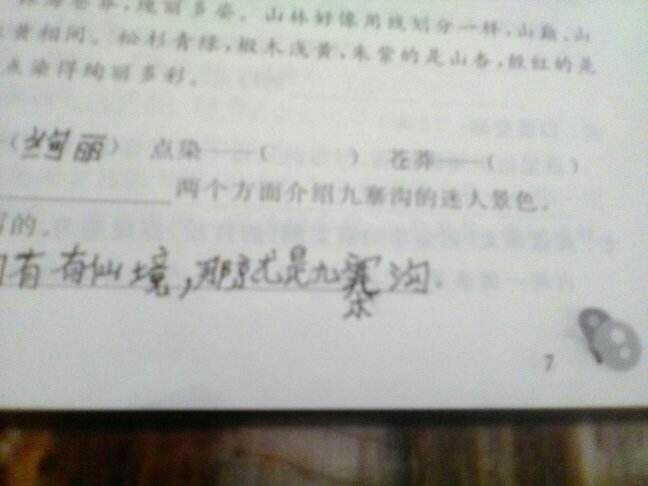 苍莽,绚丽多姿。山林好像用线划分一样,山巅、山
黄相间。松杉青绿,椴木浅黄,朱紫的是山杏,殷红的是
点染得绚丽多彩。
(绚丽) 点染——( ) 苍莽——( )
两个方面介绍九寨沟的迷人景色。
写的。
有仙境,那就是九寨沟。
7